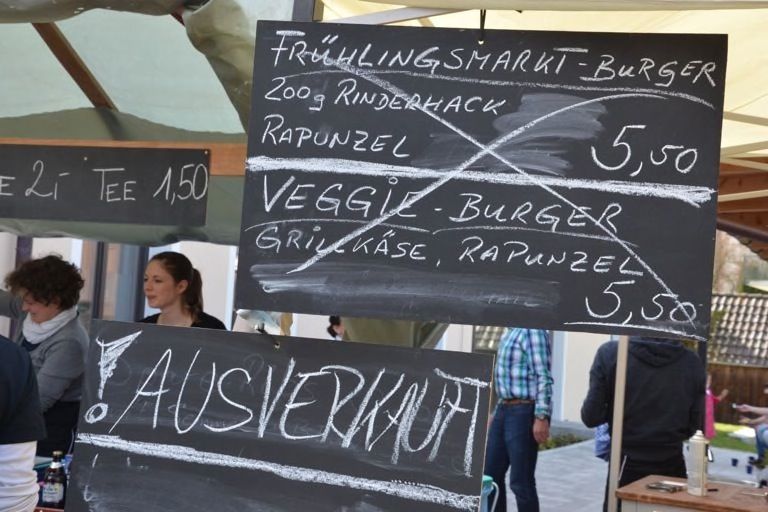 FRÜHLINGSMARKT-BURGER
200g RINDERHACK
RAPUNZEL 5,50
VEGGIE-BURGER
GRILLKÄSE, RAPUNZEL
5,50
E 2,- TEE 1,50
! AUSVERKAUFT